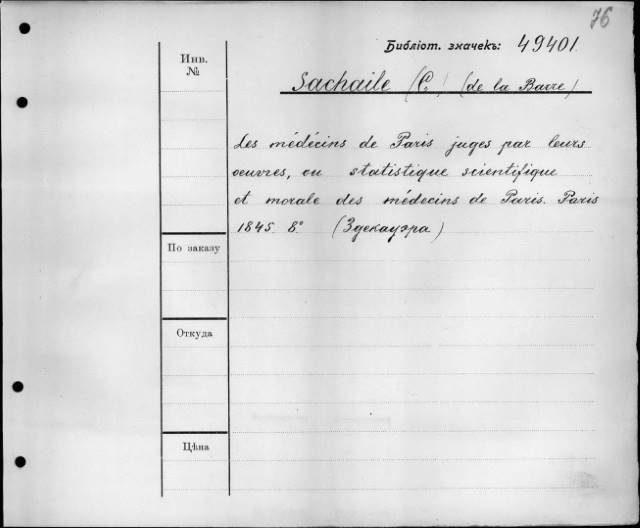 76
Библіот. значекъ: 49401.
Инв. №
Sachaile (C.) (de la Barre)
Les médécins de Paris juges par leurs
oeuvres, ou statistique scientifique
et morale des médecins de Paris. Paris
1845. 8° (Здекауэра)
По заказу
Откуда
Цѣна